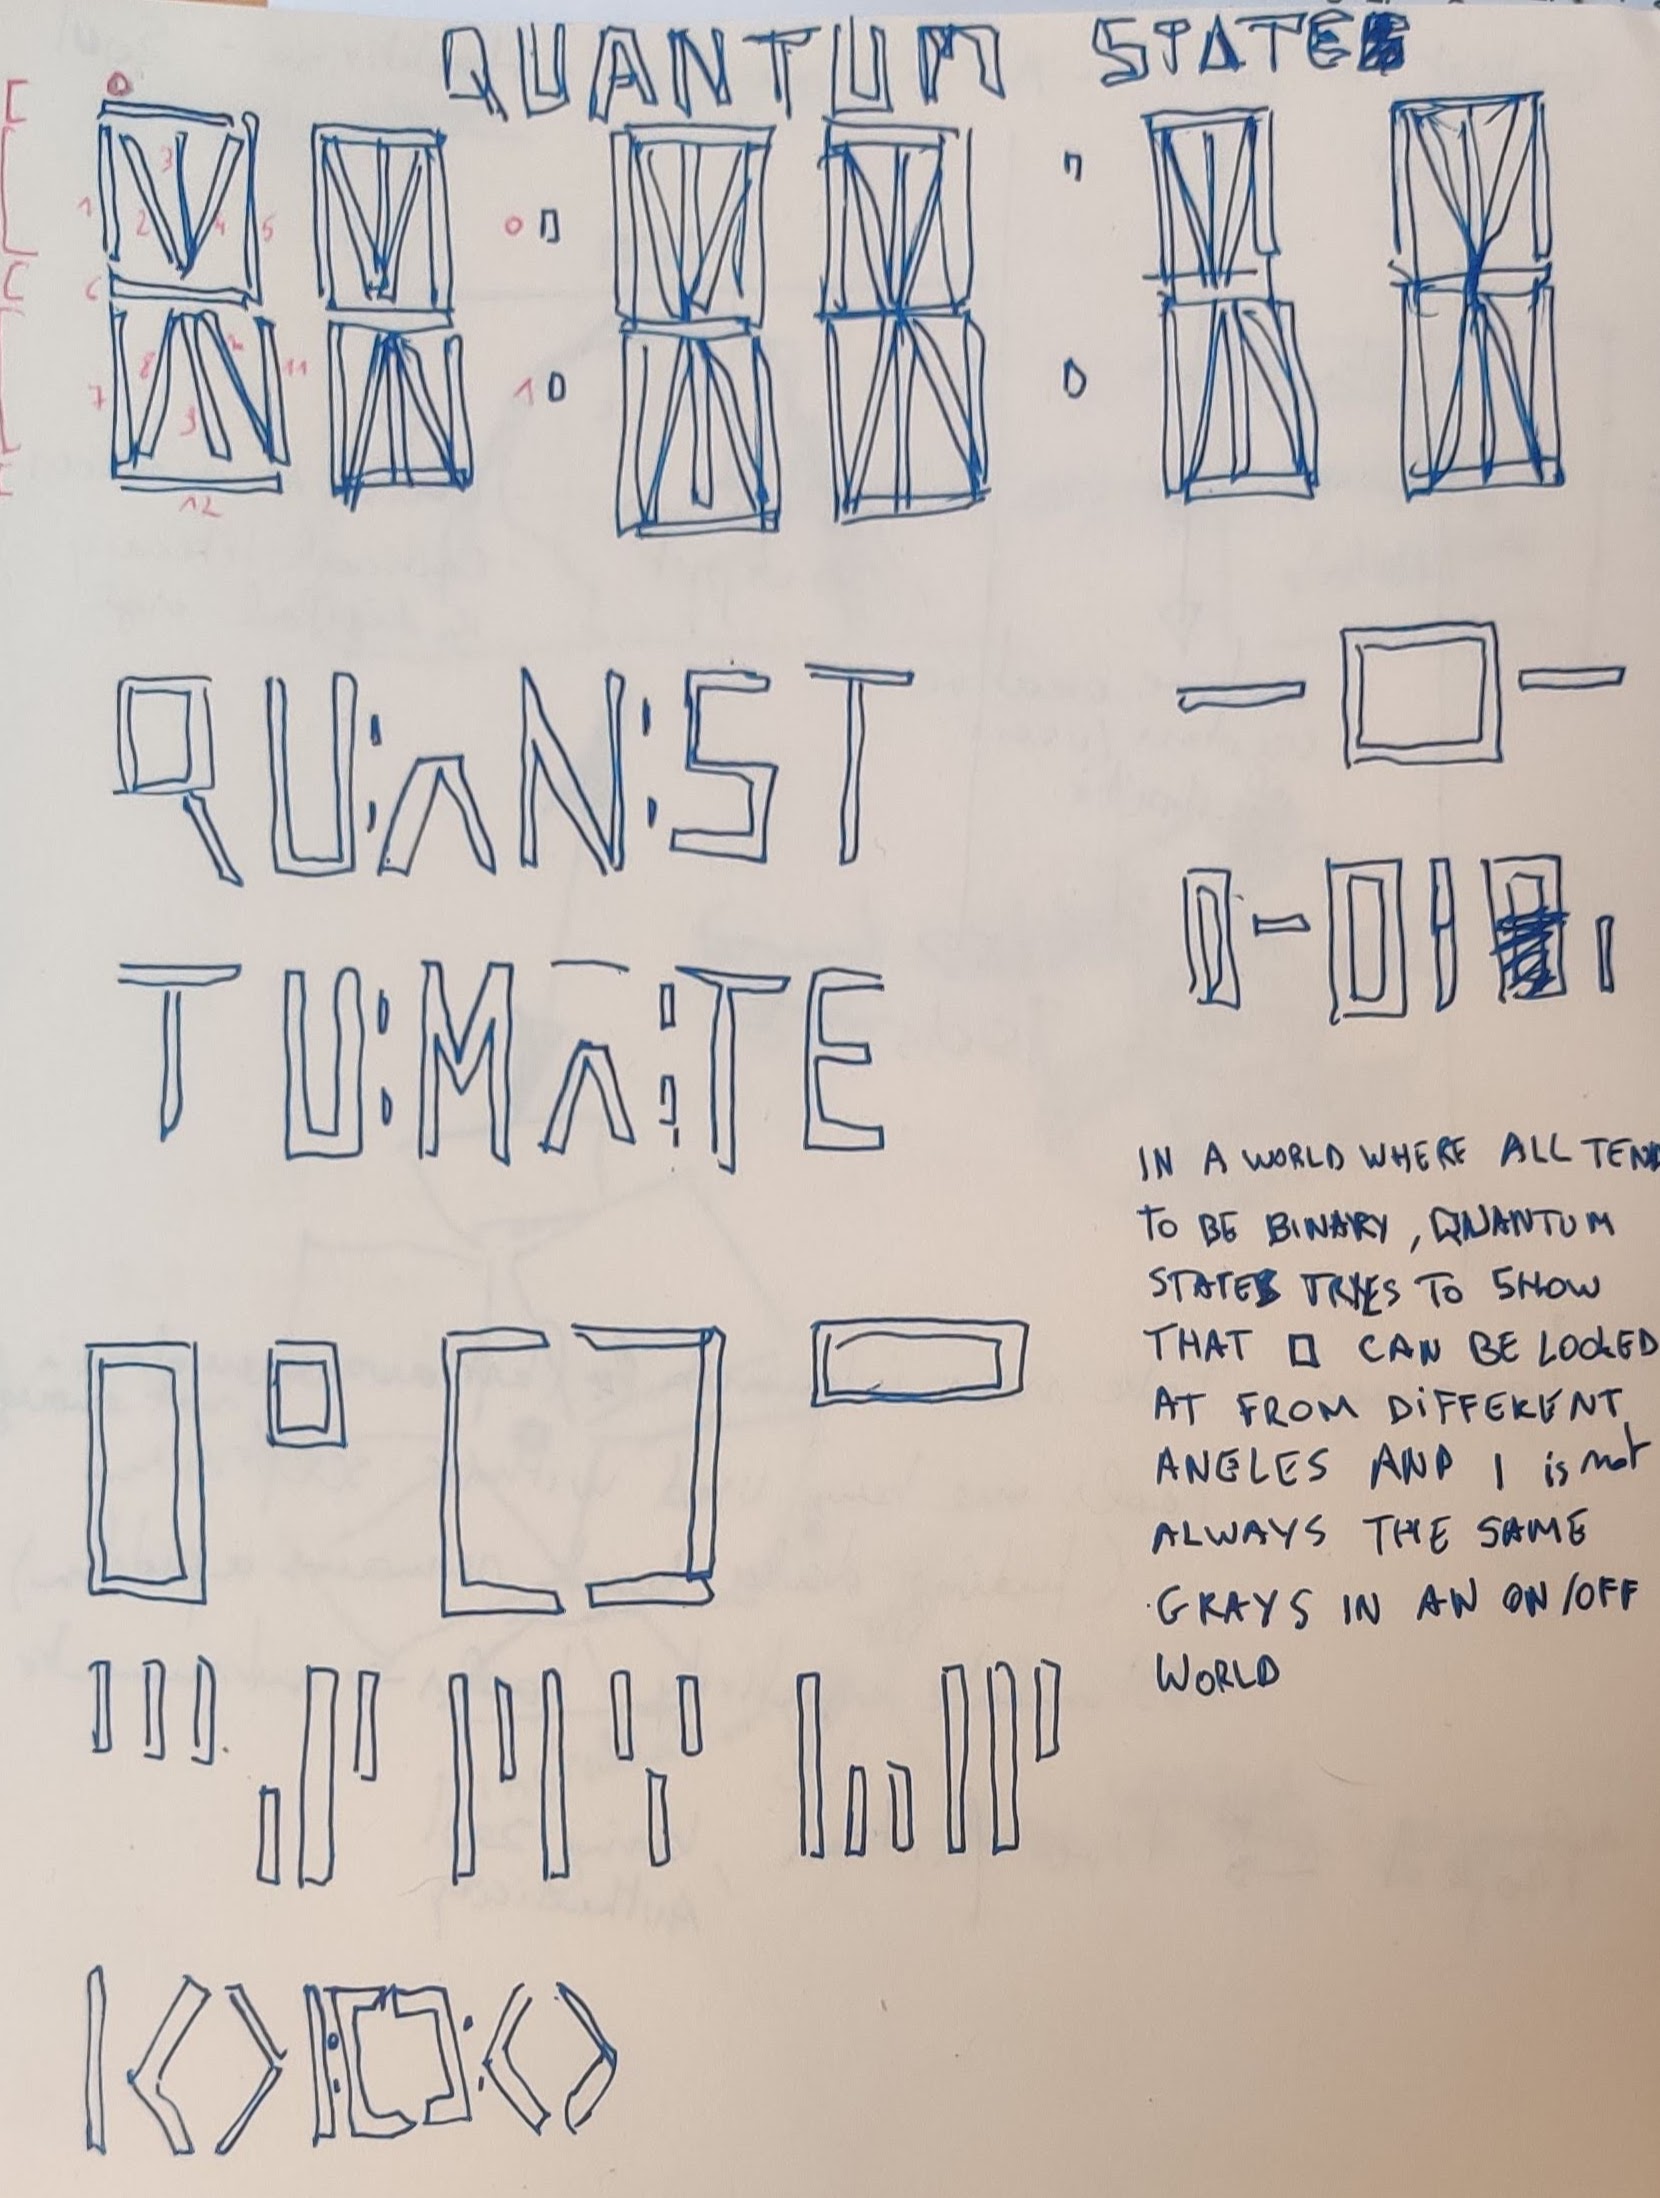 QUANTUM STATE
0
1 2 3 4 5
0
6
1
7 8 9 11
12
QU:AN:ST
TU:MA:TE
IN A WORLD WHERE ALL TEND
TO BE BINARY, QUANTUM
STATE TRYES TO SHOW
THAT 0 CAN BE LOOKED
AT FROM DiFFERENT
ANGLES AND 1 is not
ALWAYS THE SAME
GRAYS IN AN ON/OFF
WORLD